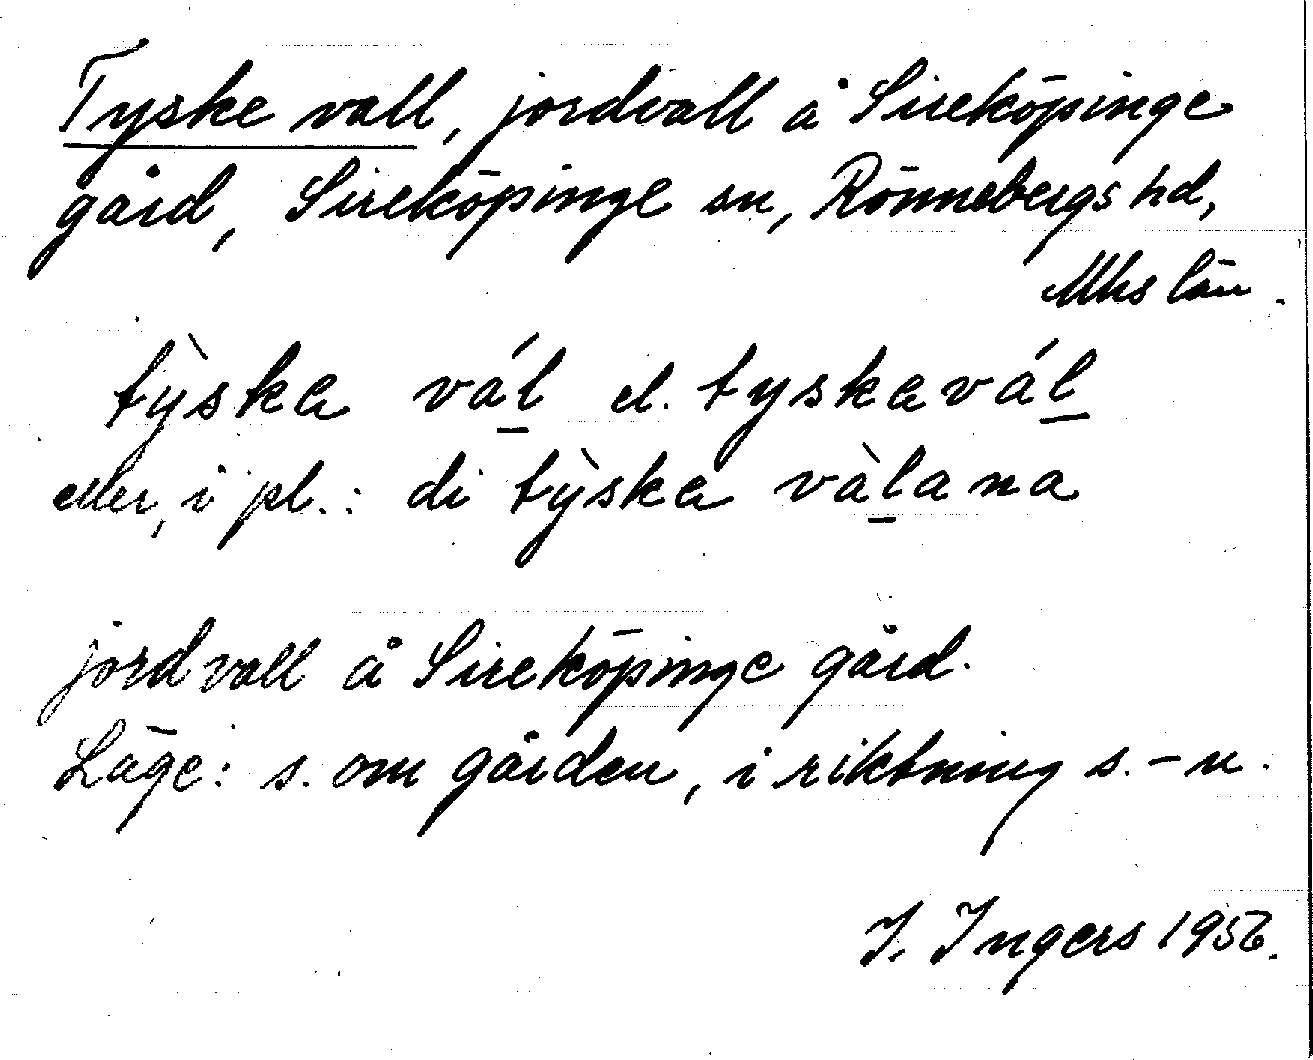 Tyske vall, jordvall å Sireköpinge
gård, Sireköpinge sn, Rönnebergs hd,
Mhs län.
tỳska vál̲ el. tyskavál̲
eller, i pl.: di tỳska vàl̲ana
jordvall å Sireköpinge gård.
Läge: s. om gården, i riktning s.-n.
I. Ingers 1956.